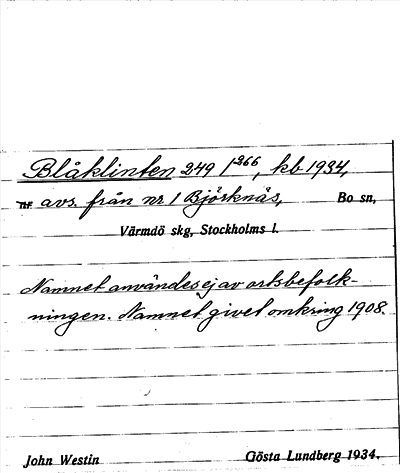 Blåklinten 249 1²⁶⁶, kb 1934,
nr avs. från nr 1 Björknäs, Bo sn,
Värmdö skg, Stockholms l.
Namnet användes ej av ortsbefolk-
ningen. Namnet givet omkring 1908.
John Westin Gösta Lundberg 1934.